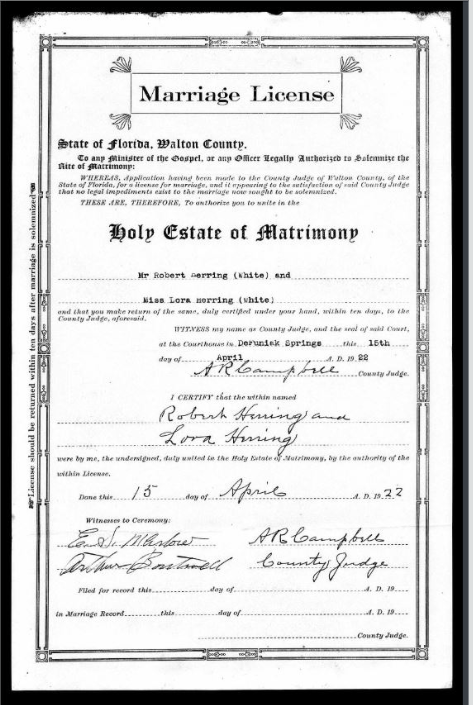 Marriage License
State of Florida, Walton County.
To any Minister of the Gospel, or any Officer Legally Authorized to Solemnize the
Rite of Matrimony:
WHEREAS, Application having been made to the County Judge of Walton County, of the
State of Florida, for a license for marriage, and it appearing to the satisfaction of said County Judge
that no legal impediments exist to the marriage now sought to be solemnized.
THESE ARE, THEREFORE, To authorize you to unite in the
Holy Estate of Matrimony
Mr Robert Herring (White) and
Miss Lora Herring (White)
and that you make return of the same, duly certified under your hand, within ten days, to the
County Judge, aforesaid.
WITNESS my name as County Judge, and the seal of said Court,
at the Courthouse in DeFuniak Springs this 15th
day of April A. D. 19 22
A R Campbell County Judge.
I CERTIFY that the within named
Robert Herring and
Lora Herring
were by me, the undersigned, duly united in the Holy Estate of Matrimony, by the authority of the
within License.
Done this 15 day of April A. D. 19 22
Witnesses to Ceremony:
E. S. Marlow A R Campbell
Arthur Boutwell County Judge
Filed for record this day of A. D. 19
in Marriage Record this day of A. D. 19
County Judge.
License should be returned within ten days after marriage is solemnized